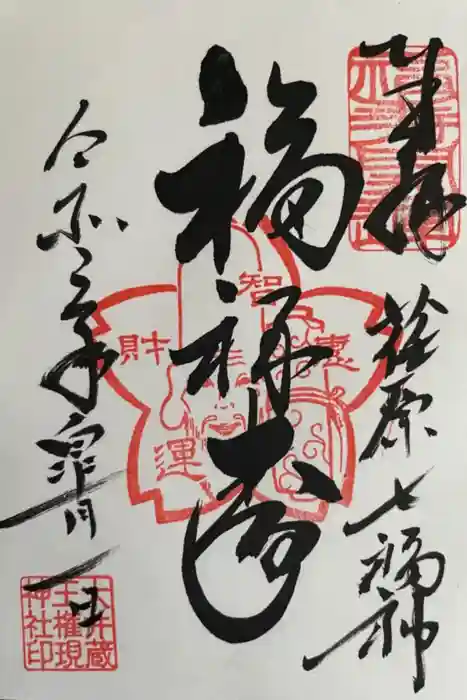 奉拝
荏原七福神
福禄寿
智
恵
財
運
令和年皐月一日
大井蔵
王権現
神社印